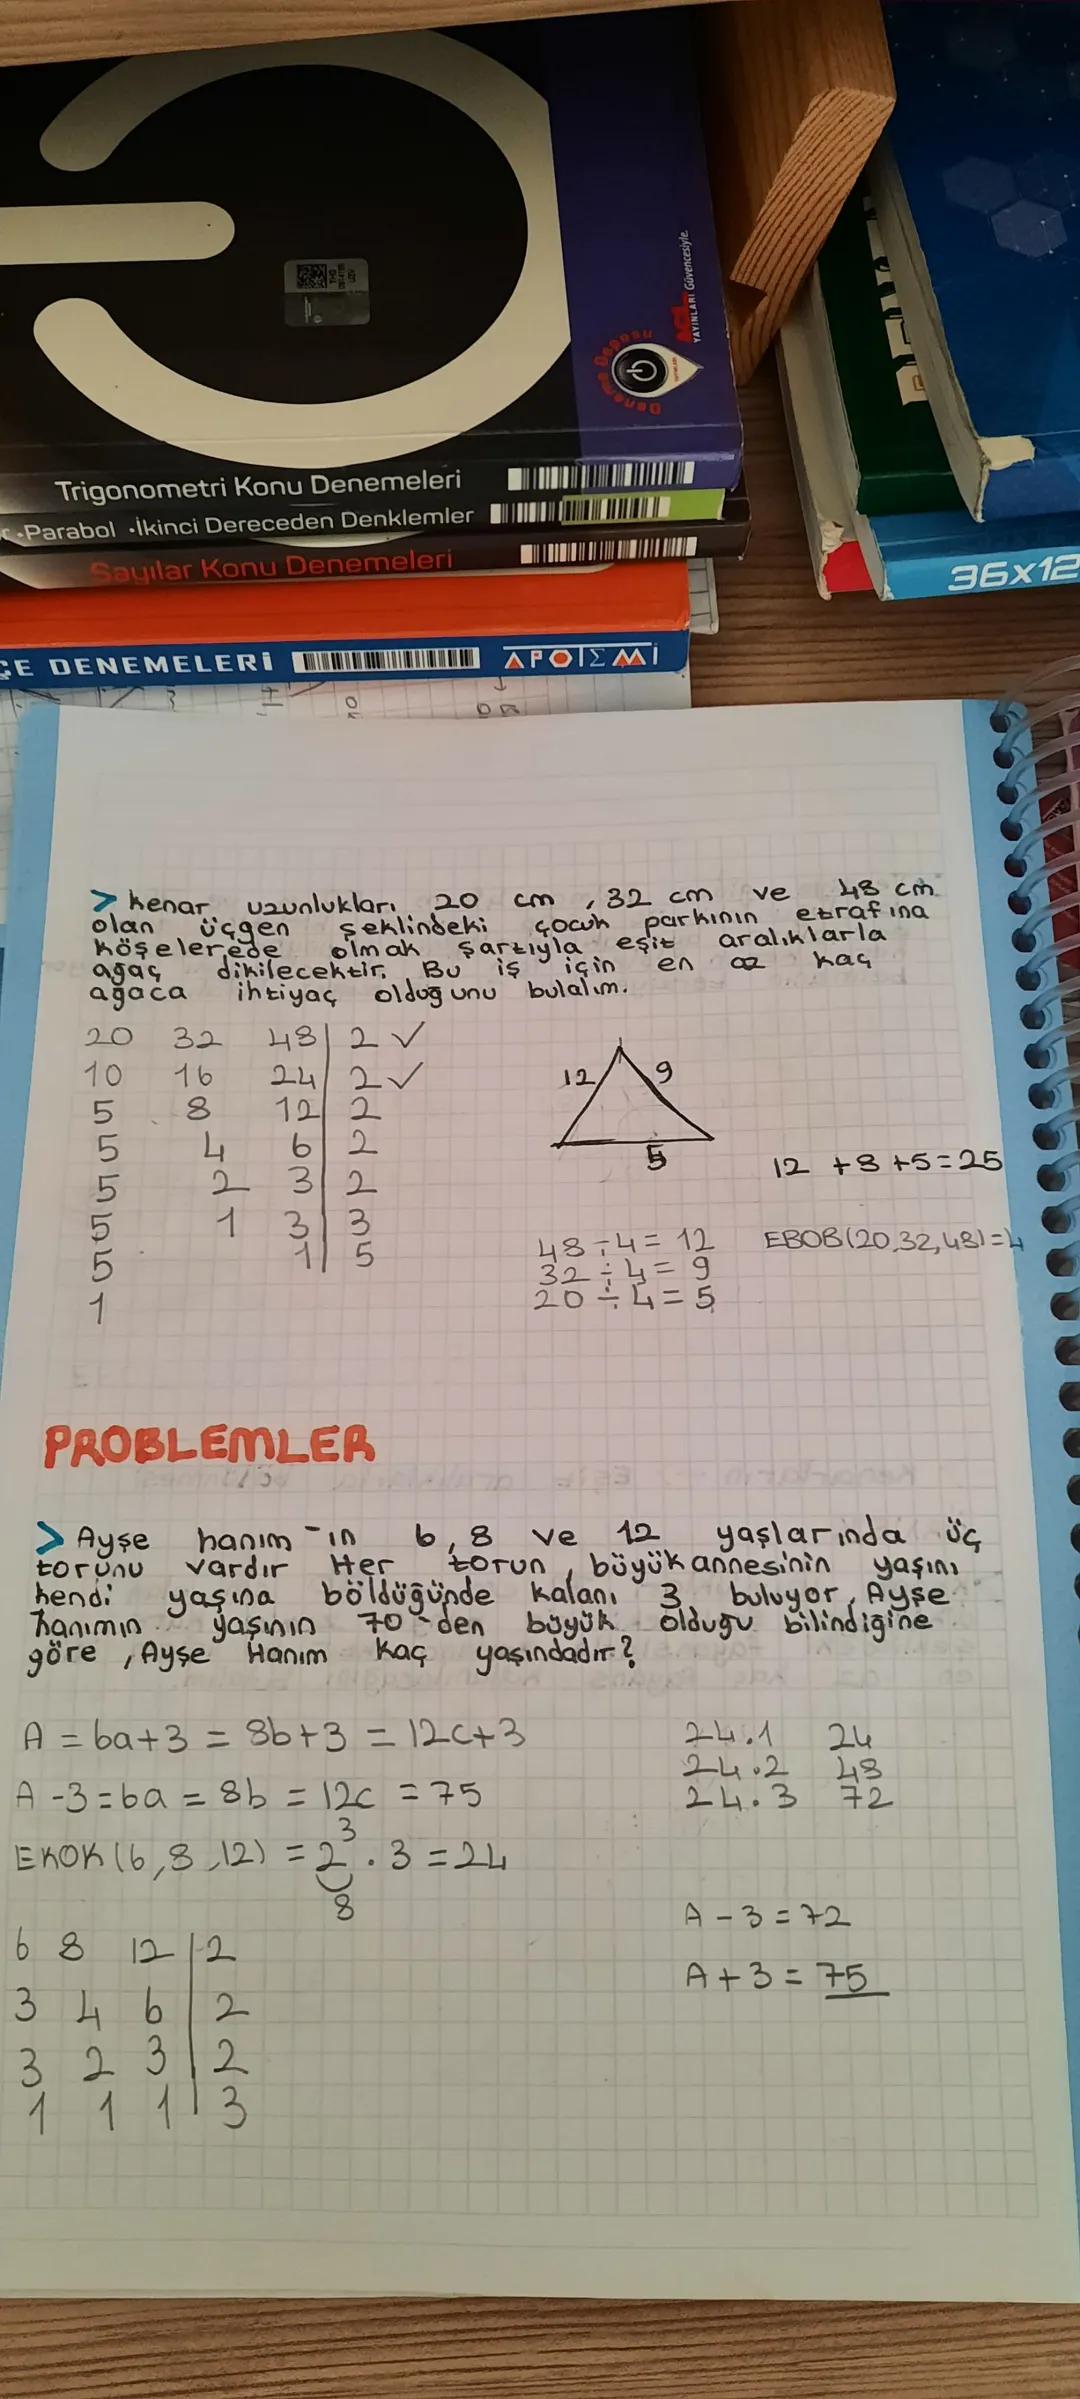 YAYINLARI Güvencesiyle.
Deneme Deposu
Trigonometri Konu Denemeleri
Parabol •İkinci Dereceden Denklemler
Sayılar Konu Denemeleri
36x12
ÇE DENEMELERİ
APOTEMİ
> kenar uzunlukları 20 cm , 32 cm ve 48 cm
olan üçgen şeklindeki çocuk parkının etrafına
köşelerede olmak şartıyla eşit aralıklarla
ağaç dikilecektir. Bu iş için en az kaç
ağaca ihtiyaç olduğunu bulalım.
20 32 48 | 2 ✓
10 16 24 | 2 ✓
5 8 12 | 2
5 4 6 | 2
5 2 3 | 2
5 1 3 | 3
5 1 | 5
1
12 9
5
12 +8 +5=25
48÷4= 12
32÷4= 9
20÷4= 5
EBOB(20,32,48)=4
PROBLEMLER
> Ayşe hanım-ın 6, 8 ve 12 yaşlarında üç
torunu vardır Her torun, büyükannesinin yaşını
kendi yaşına böldüğünde kalanı 3 buluyor, Ayşe
hanımın yaşının 70-den büyük olduğu bilindiğine
göre , Ayşe Hanım kaç yaşındadır?
A = 6a+3 = 8b+3 = 12c+3
A -3=6a = 8b = 12c = 75
EKOK (6,8,12) = 2³ . 3 = 24
8
6 8 12 | 2
3 4 6 | 2
3 2 3 | 2
1 1 1 | 3
24.1 24
24.2 48
24.3 72
A - 3 = 72
A + 3 = 75